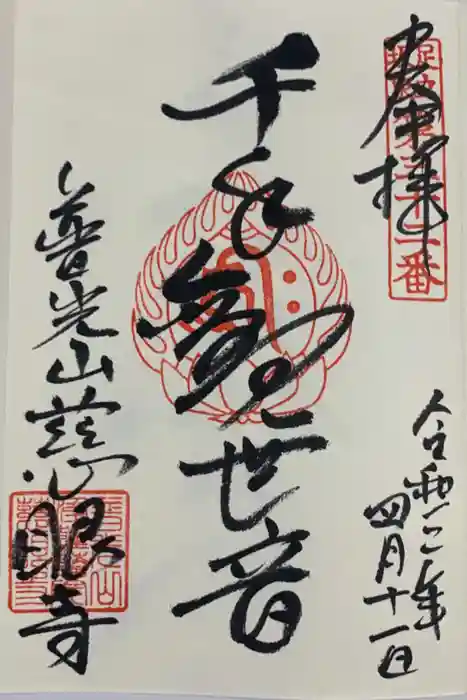 奉拝
令和二年
四月十一日
千手観世音
普光山慈眼寺